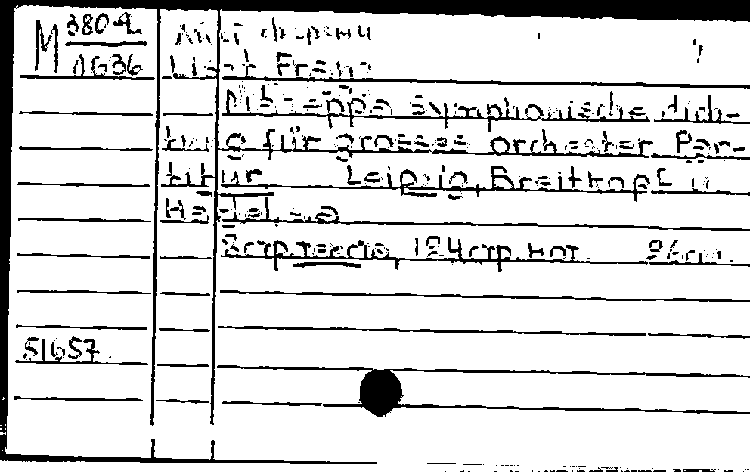 M 380-2 Лист Ференц
1636 Liszt Franz
Mazeppa symphonische dich-
tung für grosses orchester. Par-
titur Leipzig, Breitkopf u.
Hartel, s.a.
8 стр. текста, 124 стр. нот. 26 см.
51657